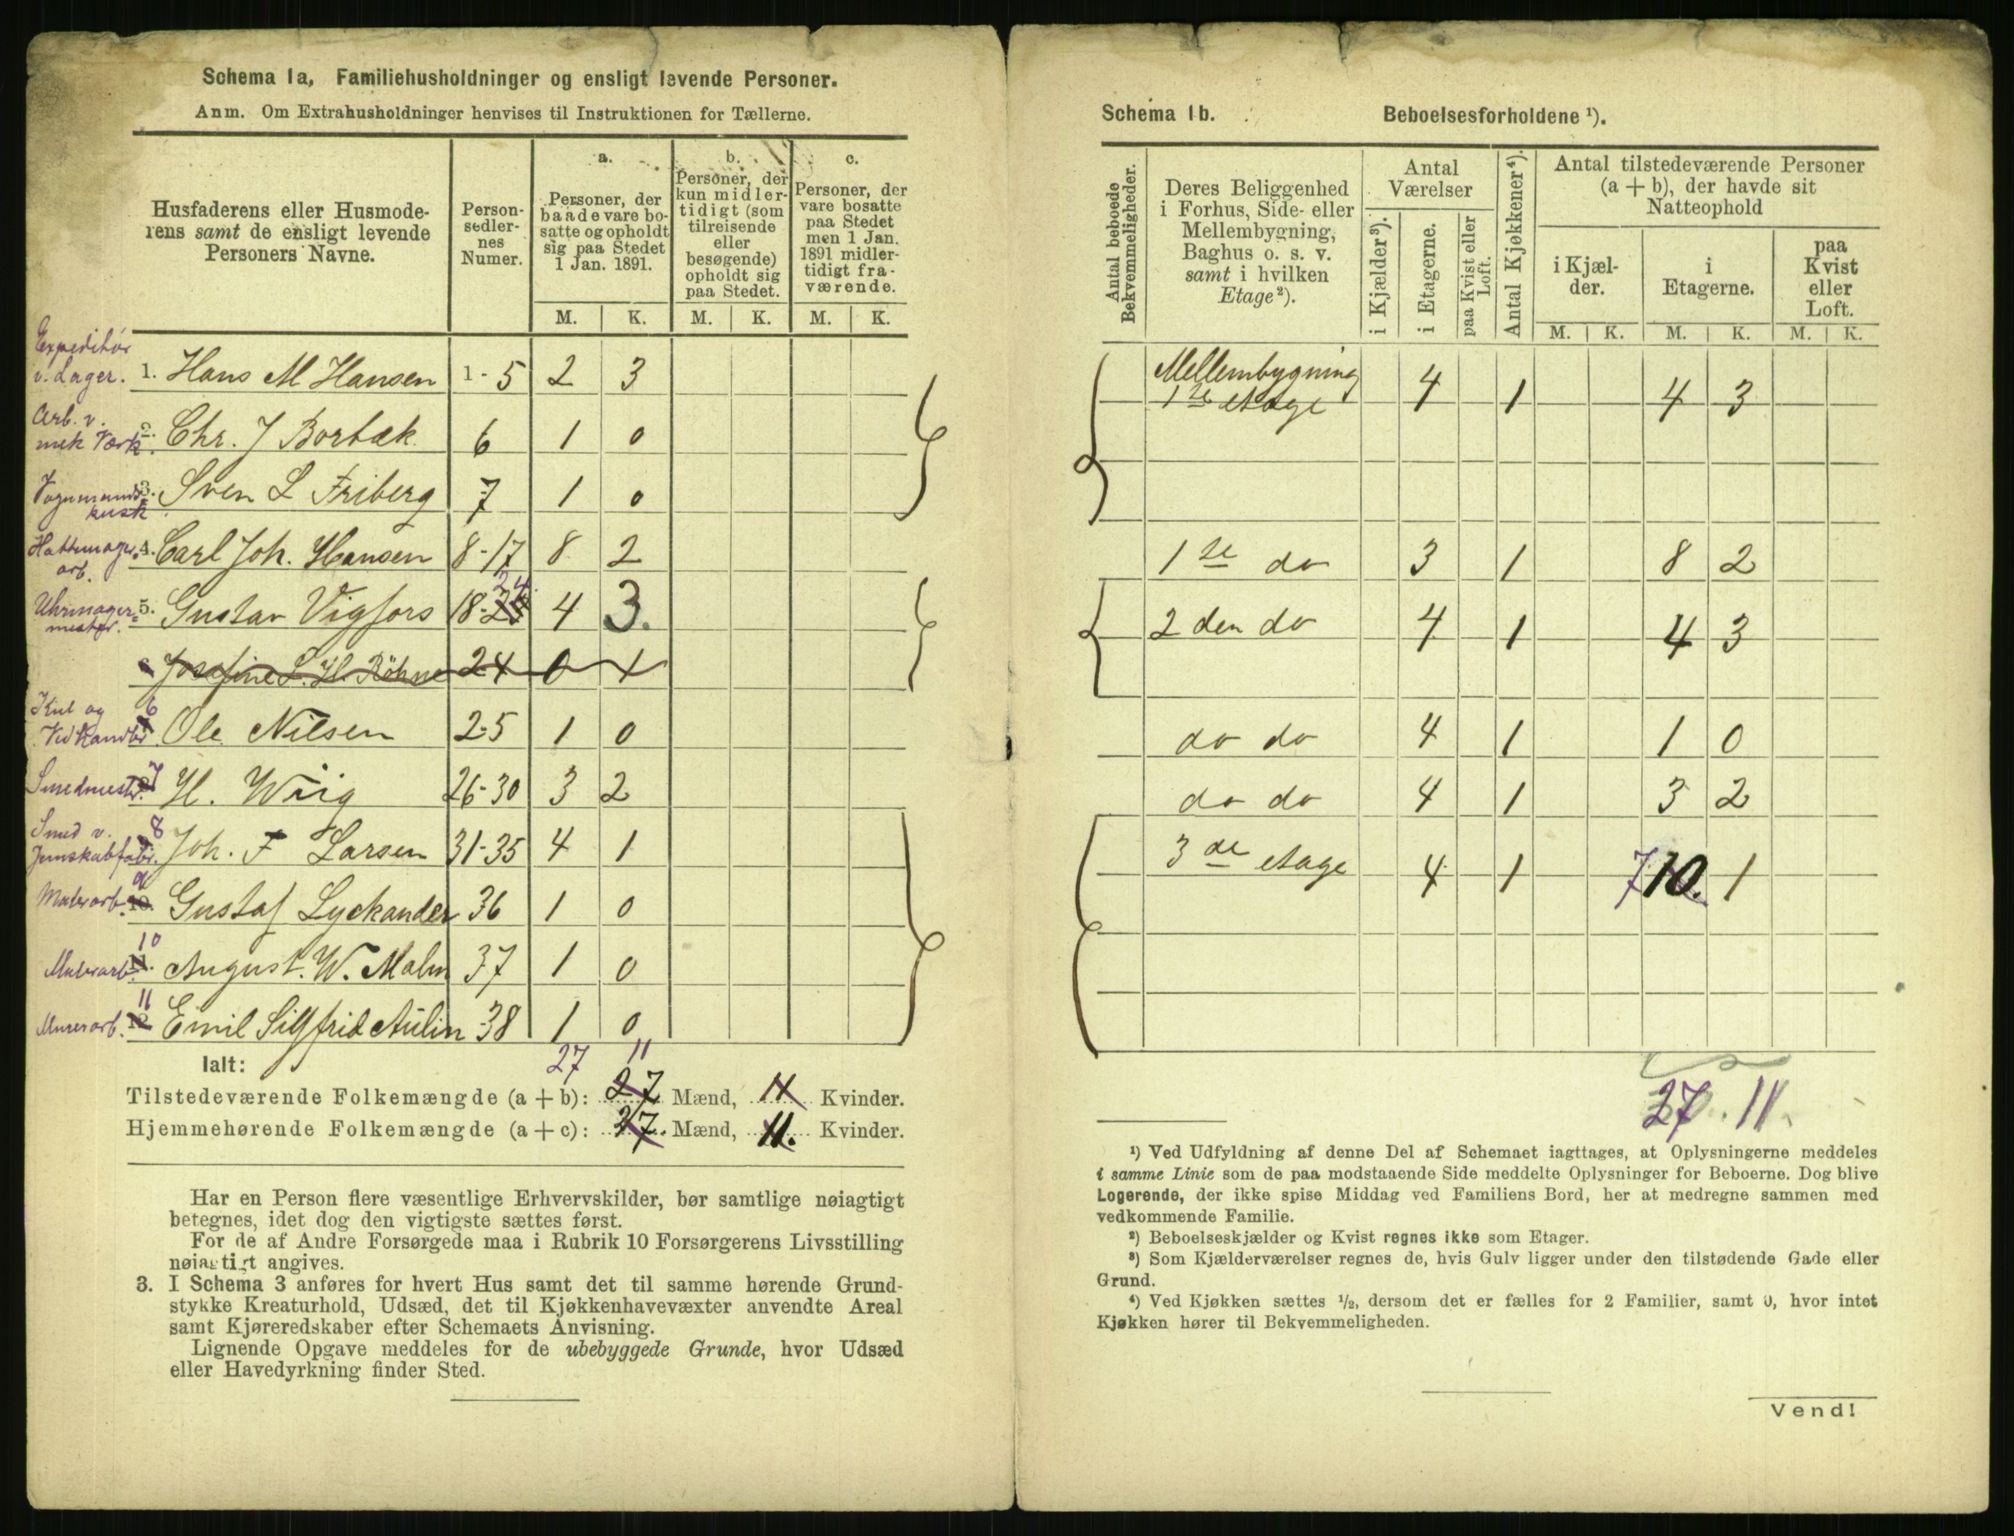 Schema 1a, Familiehusholdninger og ensligt levende Personer.
Anm. Om Extrahusholdninger henvises til Instruktionen for Tællerne.
Husfaderens eller Husmode-
rens samt de ensligt levende
Personers Navne.
Person-
sedler-
nes
Numer.
a.
Personer, der
baade vare bo-
satte og opholdt
sig paa Stedet
1 Jan. 1891.
b.
Personer, der
kun midler-
tidigt (som
tilreisende
eller
besøgende)
opholdt sig
paa Stedet.
c.
Personer, der
vare bosatte
paa Stedet
men 1 Jan.
1891 midler-
tidigt fra-
værende.
M. K. M. K. M. K.
Expeditør
v. Lager. 1. Hans M Hansen 1-5 2 3
Arb. v.
mek Værk. 2. Chr. J Borbæk 6 1 0
Vognmands
kusk 3. Sven L Friberg 7 1 0
Hattemager
arb. 4. Carl Joh. Hansen 8-17 8 2
24
Uhrmager=
mester. 5. Gustav Vigfors 18- 4 3.
Josefine L. H. Röhne 24 0 1
Kul og 6
Vedhandler Ole Nilsen 25 1 0
Smedmester. 7 H. Wiig 26-30 3 2
Smed v. 8
Jernskabfabr. Joh. F Larsen 31-35 4 1
Malerarb. 9 10. Gustaf Lyckander 36 1 0
10
Malerarb. 11. August. W. Malm 37 1 0
11
Murerarb. 12. Emil Sigfrid Aulin 38 1 0
Ialt: 27 11
Tilstedeværende Folkemængde (a + b): 27 Mænd, 11 Kvinder.
Hjemmehørende Folkemængde (a + c): 27. Mænd, 11. Kvinder.
Har en Person flere væsentlige Erhvervskilder, bør samtlige nøiagtigt
betegnes, idet dog den vigtigste sættes først.
For de af Andre Forsørgede maa i Rubrik 10 Forsørgerens Livsstilling
nøiagtigt angives.
3. I Schema 3 anføres for hvert Hus samt det til samme hørende Grund-
stykke Kreaturhold, Udsæd, det til Kjøkkenhavevæxter anvendte Areal
samt Kjøreredskaber efter Schemaets Anvisning.
Lignende Opgave meddeles for de ubebyggede Grunde, hvor Udsæd
eller Havedyrkning finder Sted.
Schema 1b. Beboelsesforholdene ¹).
Antal beboede
Bekvemmeligheder.
Deres Beliggenhed
i Forhus, Side- eller
Mellembygning,
Baghus o. s. v.
samt i hvilken
Etage ²).
Antal
Værelser
i Kjælder ³).
i Etagerne.
paa Kvist eller
Loft.
Antal Kjøkkener ⁴).
Antal tilstedeværende Personer
(a + b), der havde sit
Natteophold
i Kjæl-
der.
i
Etagerne.
paa
Kvist
eller
Loft.
M. K. M. K. M. K.
Mellembygning
1ste etage 4 1 4 3
1ste do 3 1 8 2
2 den do 4 1 4 3
do do 4 1 1 0
do do 4 1 3 2
3 de etage 4 1 7 10. 1
27. 11.
¹) Ved Udfyldning af denne Del af Schemaet iagttages, at Oplysningerne meddeles
i samme Linie som de paa modstaaende Side meddelte Oplysninger for Beboerne. Dog blive
Logerende, der ikke spise Middag ved Familiens Bord, her at medregne sammen med
vedkommende Familie.
²) Beboelseskjælder og Kvist regnes ikke som Etager.
³) Som Kjælderværelser regnes de, hvis Gulv ligger under den tilstødende Gade eller
Grund.
⁴) Ved Kjøkken sættes ½, dersom det er fælles for 2 Familier, samt 0, hvor intet
Kjøkken hører til Bekvemmeligheden.
Vend!